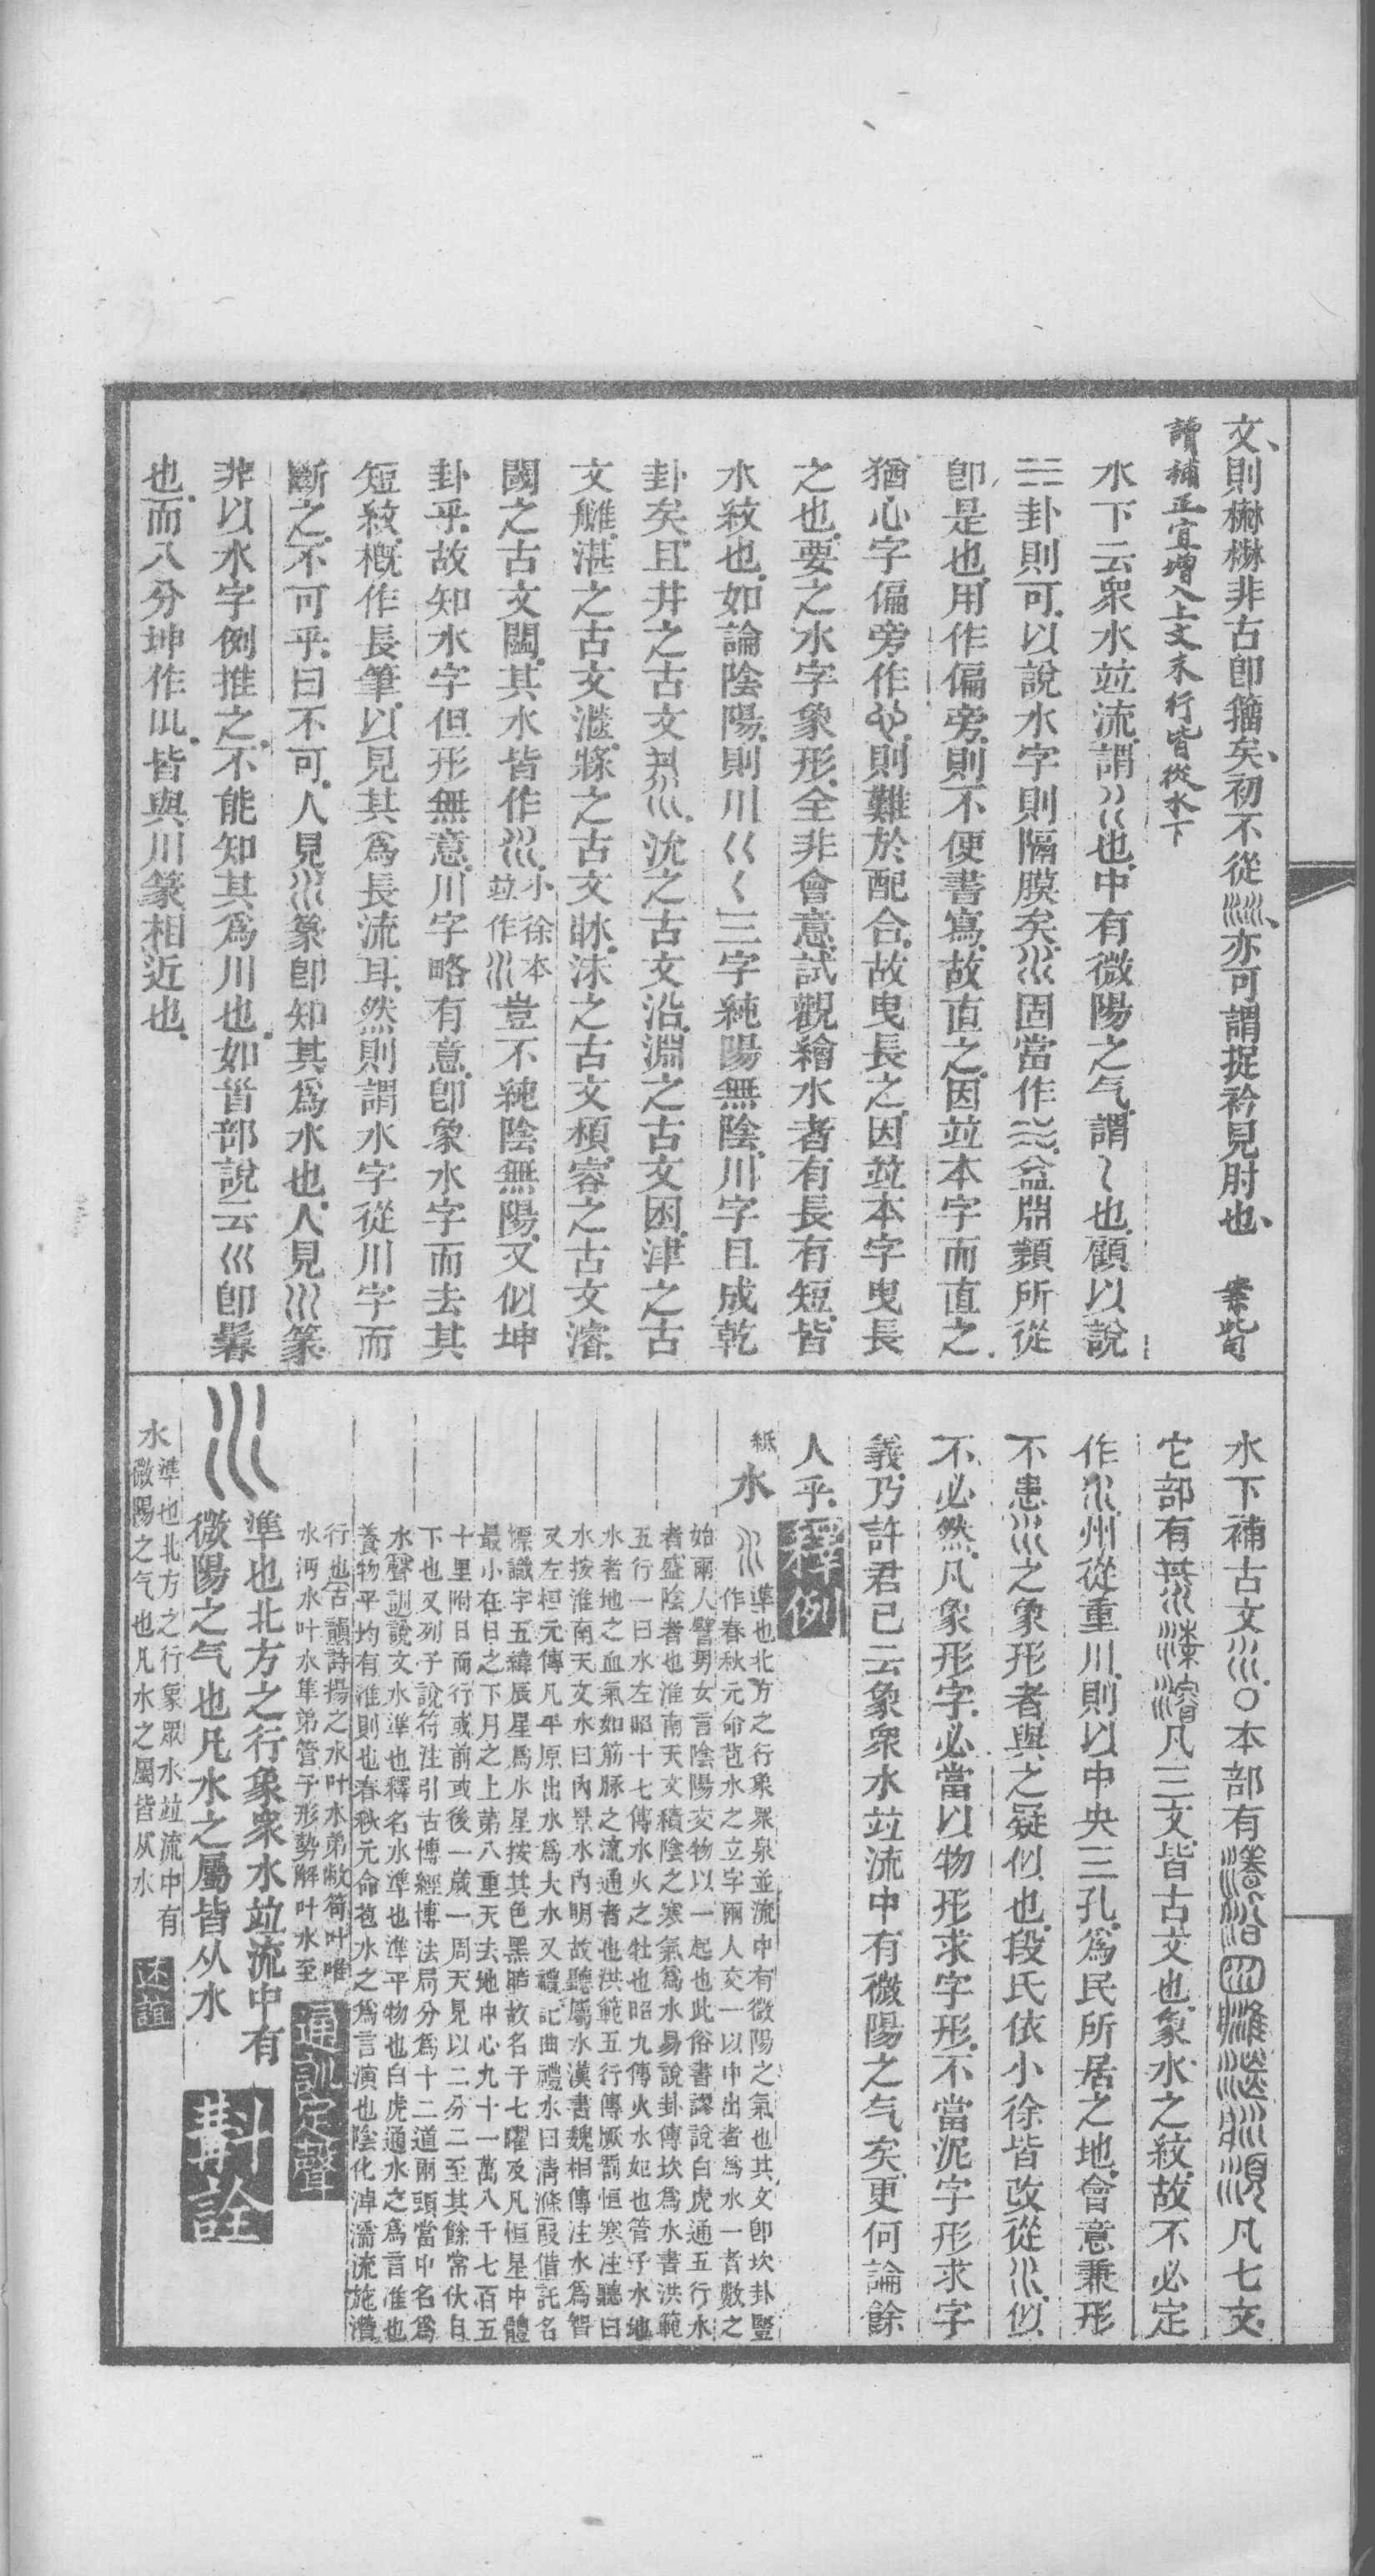 文、則㯥㯥非古卽籒矣、初不從亦可謂捉衿見肘也、 案此句
讀補正宜增入上文末行皆從水下
水下云衆水竝流謂也中有微陽之气謂也顧以說
卦則可以說水字則隔膜矣固當作益類所從
卽是也用作偏旁則不便書寫故直之因竝本字而直之
猶心字偏旁作則難於配合故曳長之因竝本字曳長
之也要之水字象形全非會意試觀繪水者有長有短皆
水紋也如論陰陽則川巜く三字純陽無陰川字且成乾
卦矣且井之古文沇之古文沿淵之古文囦津之古
文湛之古文之古文沬之古文容之古文濬
闊之古文其水皆作小徐本竝作豈不純陰無陽又似坤
卦乎故知水字但形無意川字略有意卽象水字而去其
短紋槪作長筆以見其爲長流耳然則謂水字從川字而
斷之不可乎曰不可人見篆卽知其爲水也人見篆
非以水字例推之不能知其爲川也如𩠐部說云巛卽鬊
也而八分坤作巛皆與川篆相近也
水下補古文〇本部有凡七文
它部有凡三文皆古文也象水之紋故不必定
作州從重川則以中央三孔爲民所居之地會意兼形
不患之象形者與之疑似也段氏依小徐皆改從似
不必然凡象形字必當以物形求字形不當泥字形求字
義乃許君已云象衆水竝流中有微陽之气矣更何論餘
人乎 釋例
紙 水 準也北方之行象衆泉並流中有微陽之氣也其文卽坎卦豎
作春秋元命苞水之立字兩人交一以中出者爲水一者數之
始兩人譬男女言陰陽交物以一起也此俗書謬說白虎通五行水
者盛陰者也淮南天文積陰之寒氣爲水易說卦傳坎爲水書洪範
五行一曰水左昭十七傳水火之牡也昭九傳火水妃也管子水地
水者地之血氣如筋脈之流通者也洪範五行傳厥罰恒寒注聽曰
水按淮南天文水曰內景水內明故聽屬水漢書魏相傳注水爲智
又左桓元傳凡平原出水爲大水又禮記曲禮水曰淸滌叚借託名
幖識字五緯辰星爲水星按其色黑暗故名于七曜及凡恒星中體
最小在日之下月之上第八重天去地中心九十一萬八千七百五
十里附日而行或前或後一歲一周天見以二分二至其餘常伏自
下也又列子說符注引古博經博法局分爲十二道兩頭當中名爲
水聲訓說文水準也釋名水準也準平物也白虎通水之爲言准也
養物平均有准則也春秋元命苞水之爲言演也陰化淖濡流施潛
行也古韻詩揚之水叶水弟敝笱叶唯
水沔水叶水隼弟管子形勢解叶水至 通訓定聲
準也北方之行象衆水竝流中有
微陽之气也凡水之屬皆从水 斠詮
水 準也北方之行象眾水竝流中有
微陽之气也凡水之屬皆从水 述誼